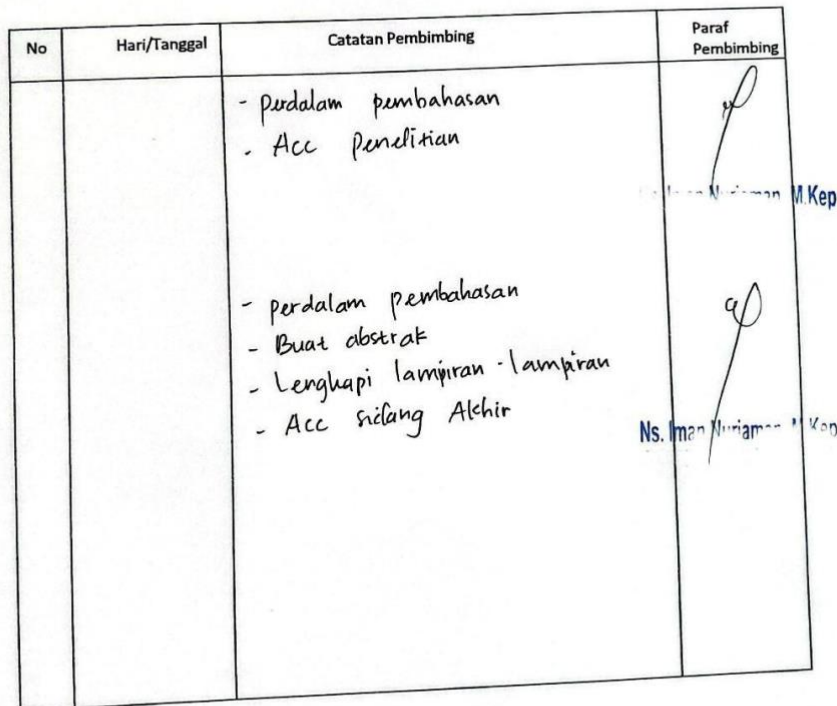 No Hari/Tanggal Catatan Pembimbing Paraf Pembimbing
- perdalam pembahasan
- Acc Penelitian
M.Kep
- perdalam pembahasan
- Buat abstrak
- Lengkapi lampiran - lampiran
- Acc sidang Akhir
Ns. Iman Nuriaman M.Kep